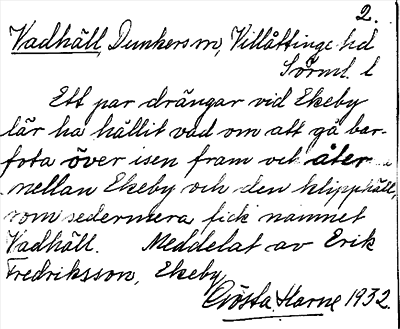 2.
Vadhäll, Dunkers sn, Villåttinge hd
Sörml. l
Ett par drängar vid Ekeby
lär ha hållit vad om att gå bar-
fota över isen fram och åter
mellan Ekeby och den klipphäll,
som sedermera fick namnet
Vadhäll. Meddelat av Erik
Fredriksson, Ekeby
Gösta Harne 1932.